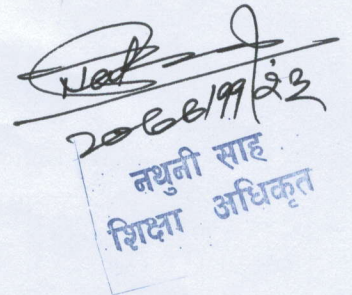 २०७७/११/२३
नथुनी साह
शिक्षा अधिकृत